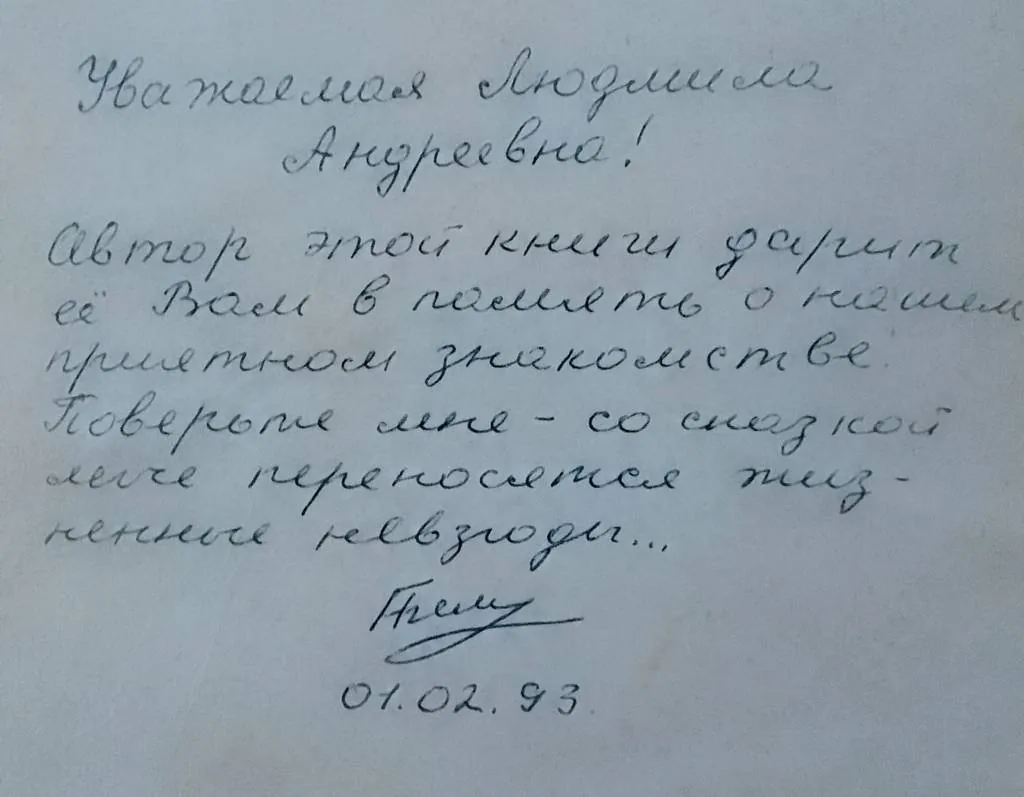 Уважаемая Людмила
Андреевна!
Автор этой книги дарит
её Вам в память о нашем
приятном знакомстве.
Поверьте мне - со сказкой
легче переносятся жиз-
ненные невзгоды...
01.02.93.